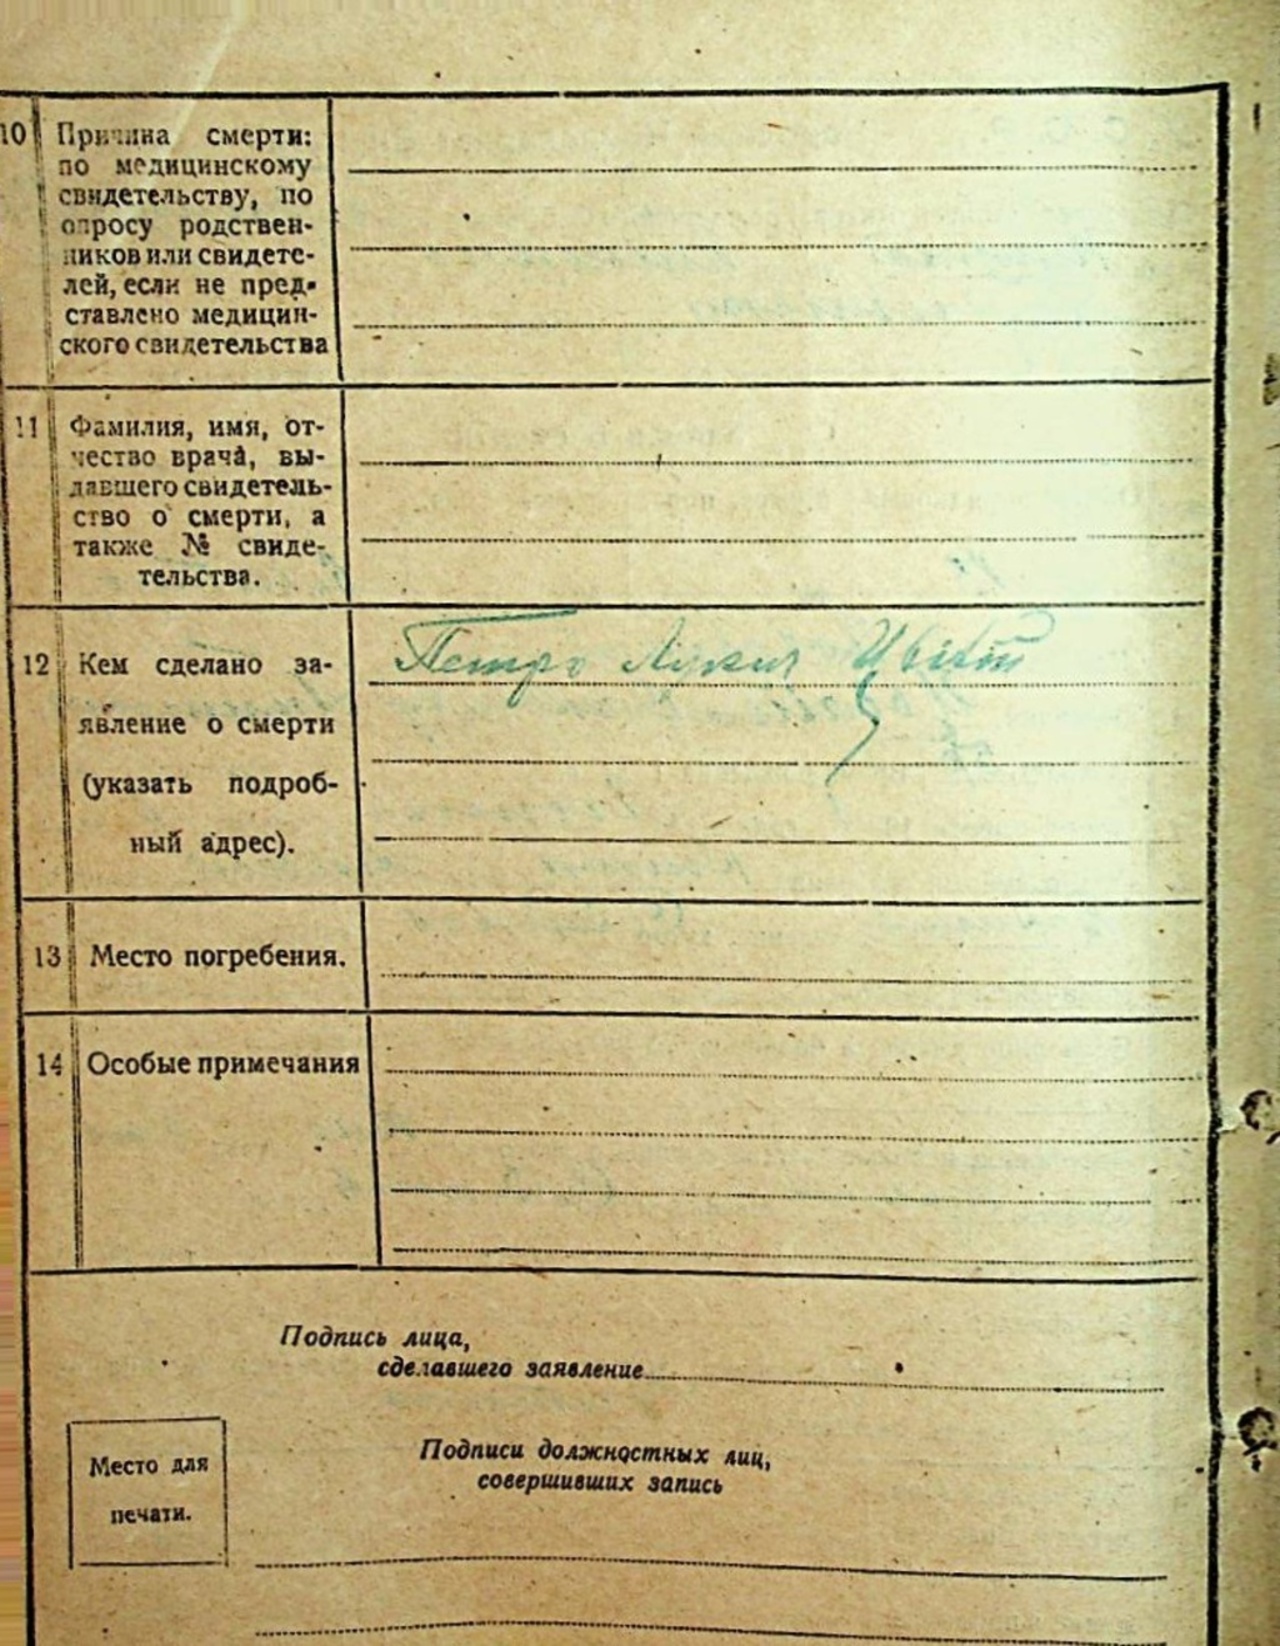 10 Причина смерти:
по медицинскому
свидетельству, по
опросу родствен-
ников или свидете-
лей, если не пред-
ставлено медицин-
ского свидетельства
11 Фамилия, имя, от-
чество врача, вы-
давшего свидетель-
ство о смерти, а
также № свиде-
тельства.
12 Кем сделано за-
явление о смерти
(указать подроб-
ный адрес).
Петро Лукич
13 Место погребения.
14 Особые примечания
Подпись лица,
сделавшего заявление
Подписи должностных лиц,
совершивших запись
Место для
печати.